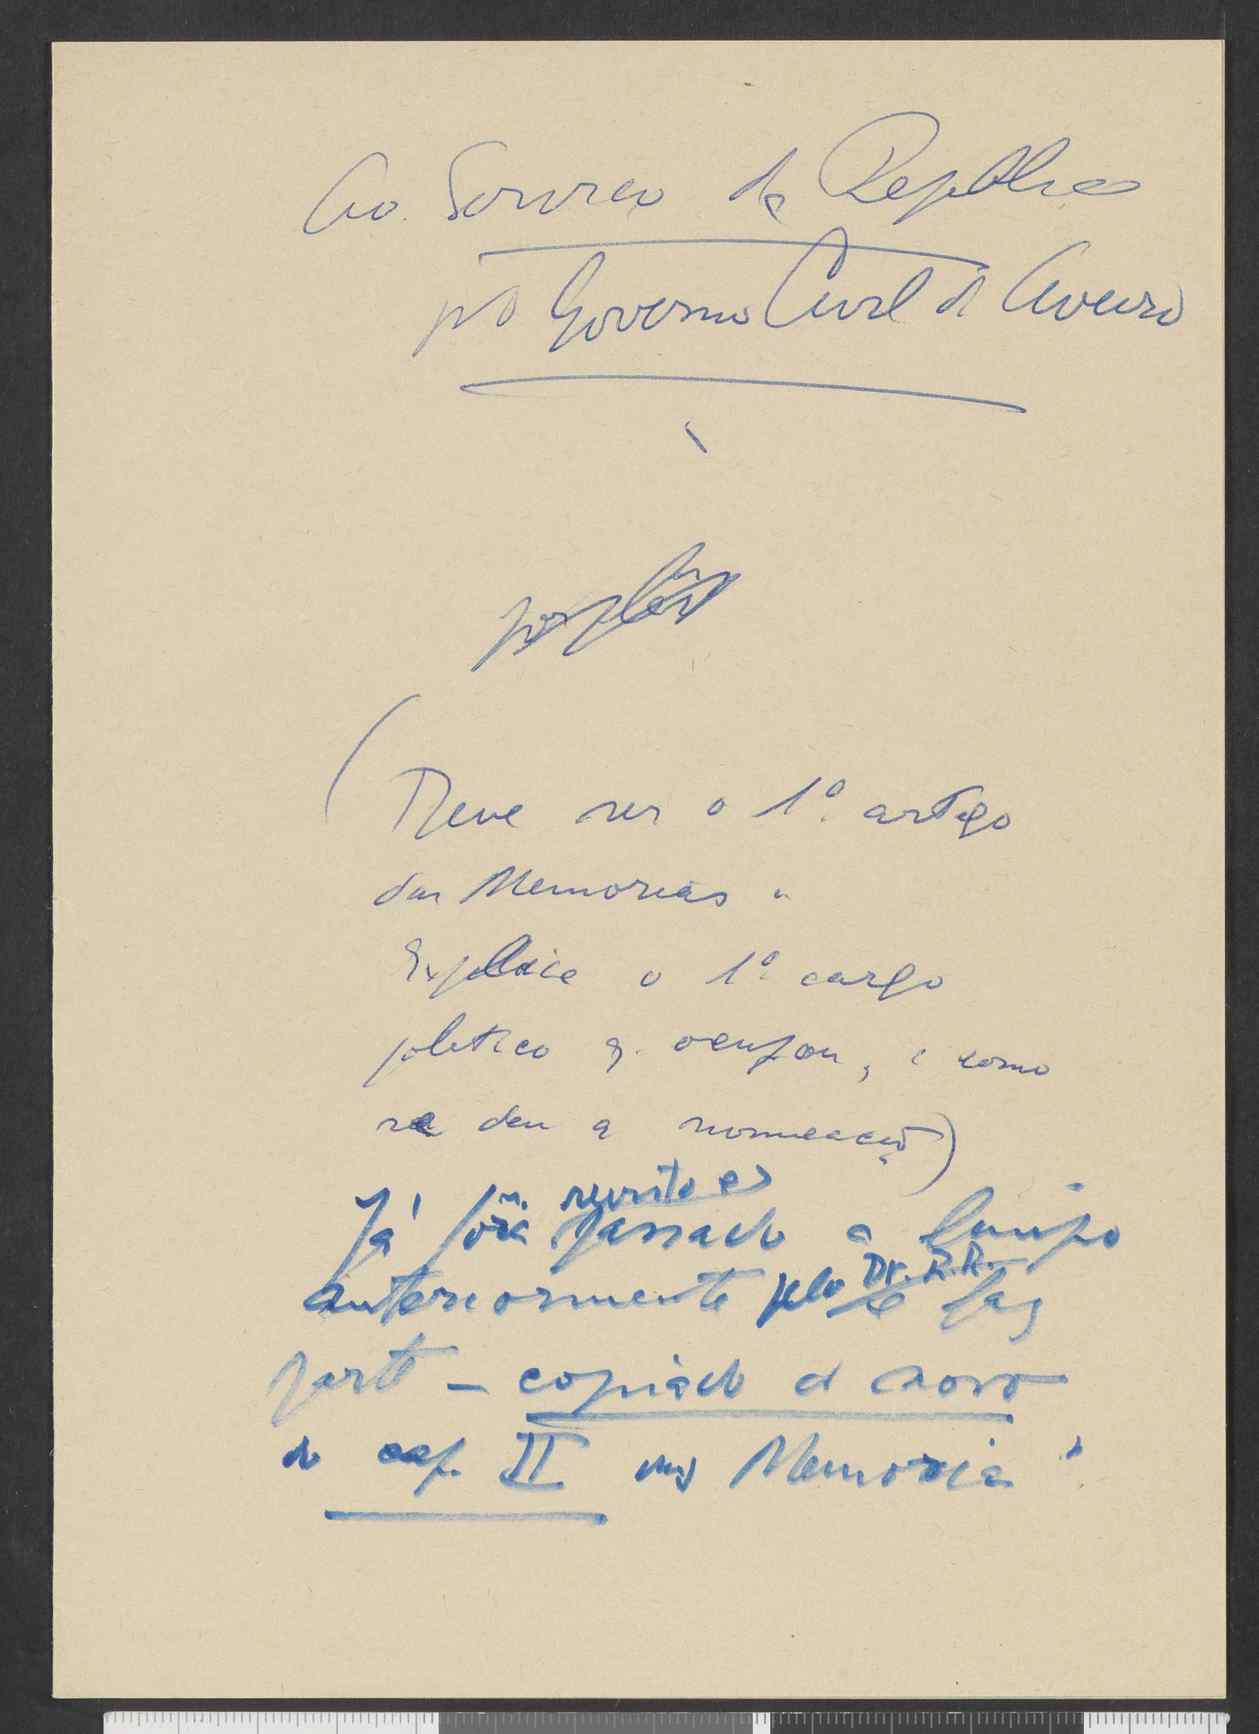 Ao Serviço da República
no Governo Civil d Aveiro
(Deve ser o 1º artigo
das Memorias "
Explica o 1º cargo
politico q. ocupou, e como
se deu a nomeação)
revisto e
Já fora passado a limpo
Dr. R.R.
anteriormente pelo e faz
parte – copiado d novo
do cap. II das Memoria "